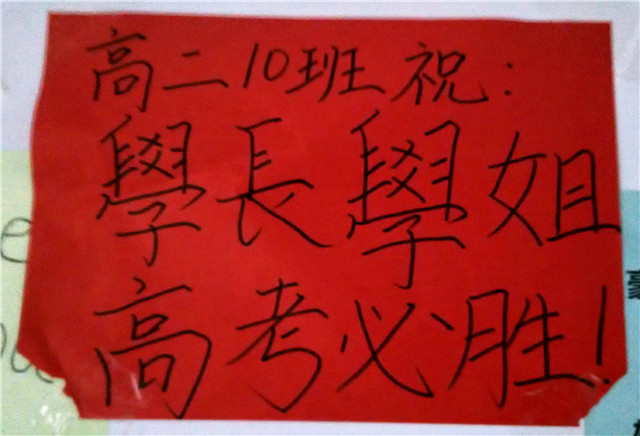 高二10班祝:
學長學姐
高考必胜!